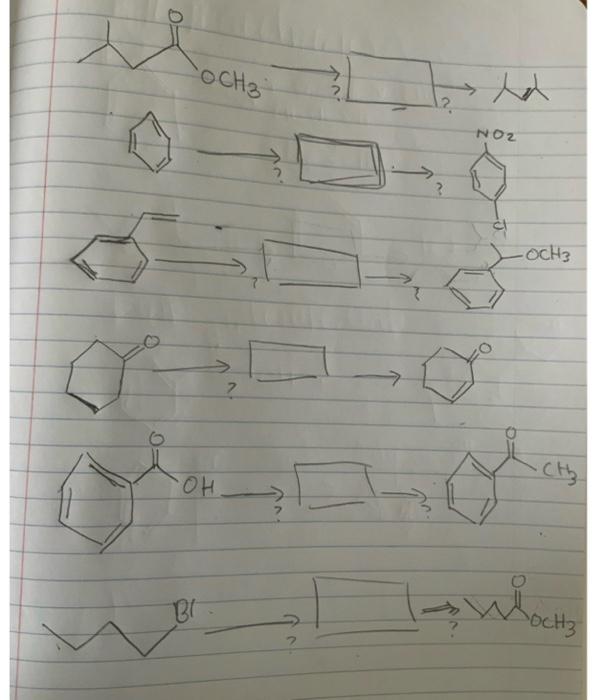 O
OCH3
?
?
NO2
?
?
Cl
OCH3
?
?
O
?
O
O
OH
?
?
O
CH3
Br
?
?
O
OCH3